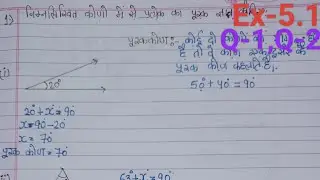 Ex-5.1
Q-1,Q-2
1) निम्नलिखित कोणों में से प्रत्येक का पूरक
पूरक कोण:- कोई दो कोणों का
है तो वे कोण
पूरक कोण कहलाते है।
(i)
20°
50° + 40° = 90°
20° + x° = 90°
x = 90° - 20°
x = 70°
पूरक कोण = 70°
63° + x° = 90°